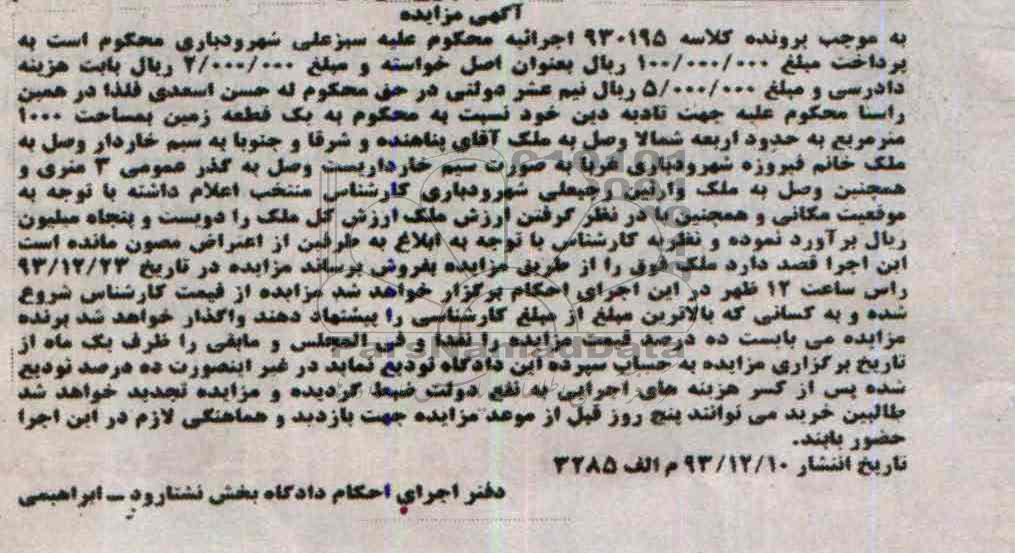 آگهی مزایده
به موجب پرونده کلاسه ۹۳۰۱۹۵ اجرائیه محکوم علیه سبزعلی شهرودباری محکوم است به
پرداخت مبلغ ۱۰۰/۰۰۰/۰۰۰ ریال بعنوان اصل خواسته و مبلغ ۲/۰۰۰/۰۰۰ ریال بابت هزینه
دادرسی و مبلغ ۵/۰۰۰/۰۰۰ ریال نیم عشر دولتی در حق محکوم له حسن اسعدی فلذا در همین
راستا محکوم علیه جهت تادیه دین خود نسبت به محکوم به یک قطعه زمین بمساحت ۱۰۰۰
مترمربع به حدود اربعه شمالا وصل به ملک آقای پناهنده و شرقا و جنوبا به سیم خاردار وصل به
ملک خانم فیروزه شهرودباری غربا به صورت سیم خارداریست وصل به گذر عمومی ۳ متری و
همچنین وصل به ملک وارثین رجبعلی شهرودباری کارشناس منتخب اعلام داشته با توجه به
موقعیت مکانی و همچنین با در نظر گرفتن ارزش ملک ارزش کل ملک را دویست و پنجاه میلیون
ریال برآورد نموده و نظریه کارشناس با توجه به ابلاغ به طرفین از اعتراض مصون مانده است
این اجرا قصد دارد ملک فوق را از طریق مزایده بفروش برساند مزایده در تاریخ ۹۳/۱۲/۲۳
راس ساعت ۱۲ ظهر در این اجرای احکام برگزار خواهد شد مزایده از قیمت کارشناس شروع
شده و به کسانی که بالاترین مبلغ از مبلغ کارشناسی را پیشنهاد دهند واگذار خواهد شد برنده
مزایده می بایست ده درصد قیمت مزایده را نقدا و فی المجلس و مابقی را ظرف یک ماه از
تاریخ برگزاری مزایده به حساب سپرده این دادگاه تودیع نماید در غیر اینصورت ده درصد تودیع
شده پس از کسر هزینه های اجرایی به نفع دولت ضبط گردیده و مزایده تجدید خواهد شد
طالبین خرید می توانند پنج روز قبل از موعد مزایده جهت بازدید و هماهنگی لازم در این اجرا
حضور یابند.
تاریخ انتشار ۹۳/۱۲/۱۰ م الف ۳۲۸۵
دفتر اجرای احکام دادگاه بخش نشتارود ــ ابراهیمی
ParsNamadData